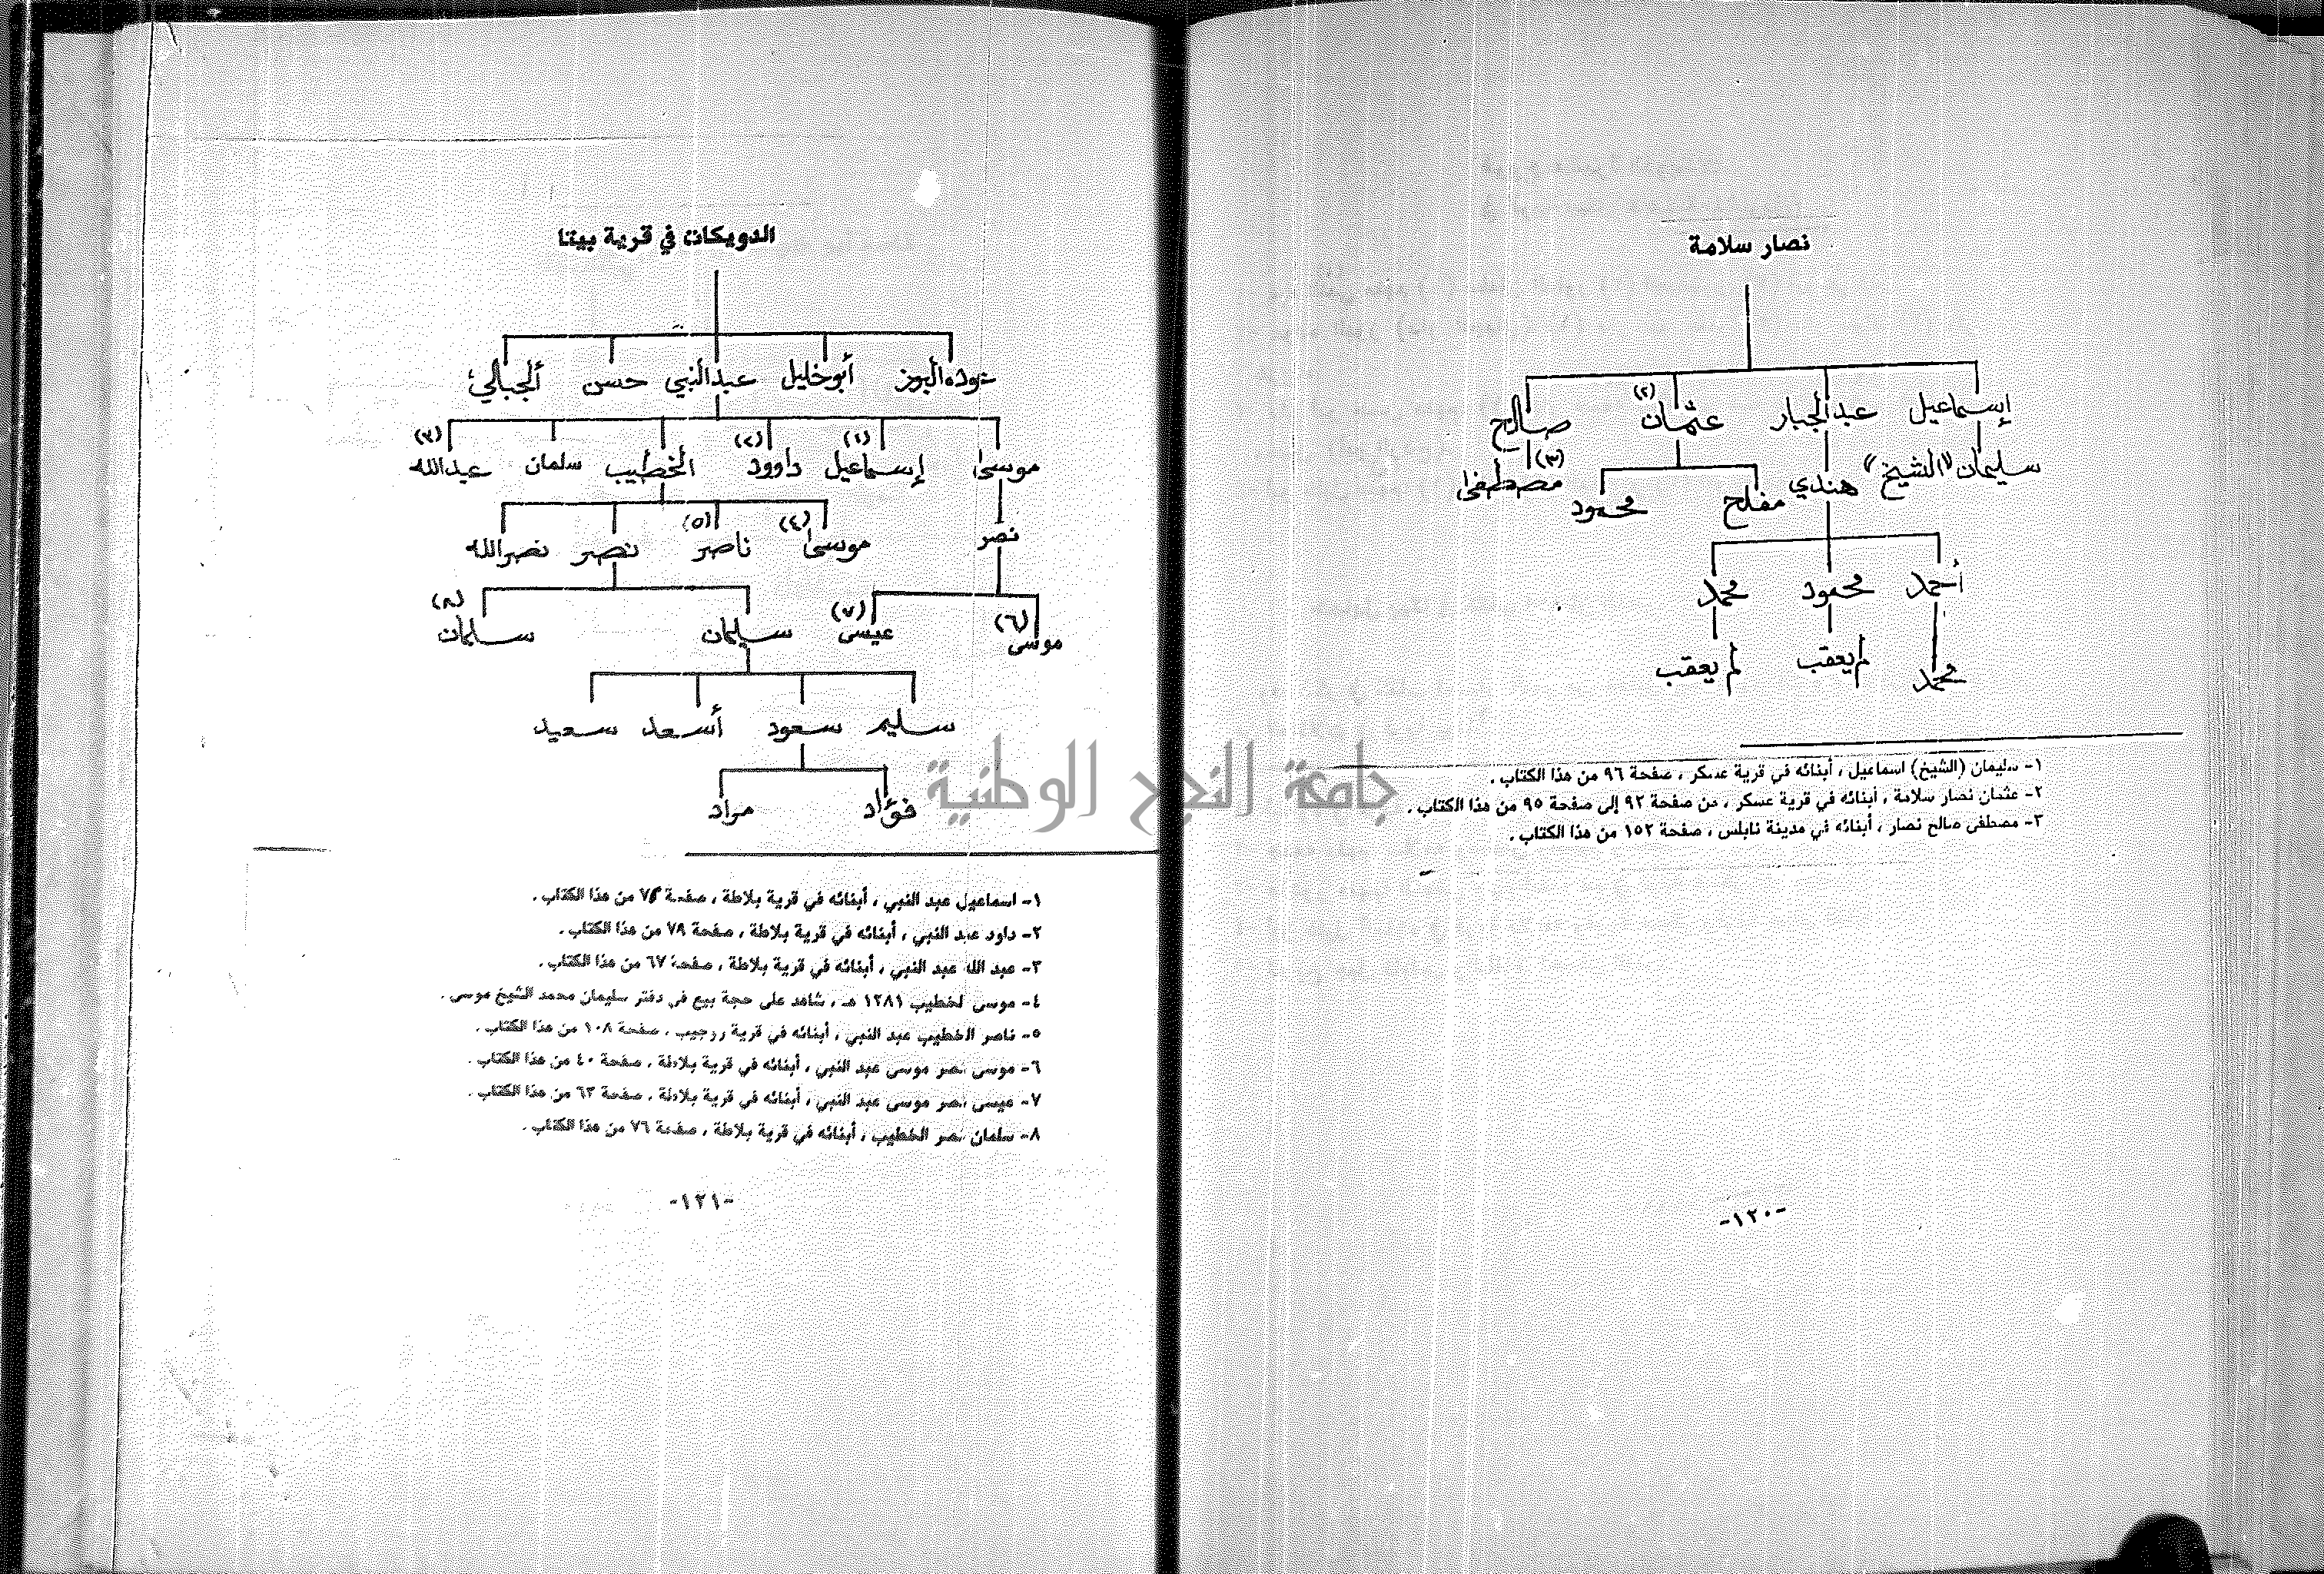 نصار سلامة
إسماعيل عبدالجبار عثمان (٢) صالح
سليمان "الشيخ" هندي مفلح محمود مصطفى (٣)
أحمد محمود محمد
محمد لم يعقب لم يعقب
١- سليمان (الشيخ) اسماعيل ، أبنائه في قرية عسكر ، صفحة ٩٦ من هذا الكتاب .
٢- عثمان نصار سلامة ، أبنائه في قرية عسكر ، من صفحة ٩٢ إلى صفحة ٩٥ من هذا الكتاب .
٣- مصطفى صالح نصار ، أبنائه في مدينة نابلس ، صفحة ١٥٢ من هذا الكتاب .
-١٢٠-
الدويكات في قرية بيتا
عوده البوز أبوخليل عبدالنبي حسن الجبالي
موسى إسماعيل (١) داوود (٢) الخطيب سلمان عبدالله (٣)
نصر موسى (٤) ناصر (٥) نصر نصرالله
موسى (٦) عيسى (٧) سليمان سليمان (٨)
سليم سعود أسعد سعيد
فؤاد مراد
١- اسماعيل عبد النبي ، أبنائه في قرية بلاطة ، صفحة من هذا الكتاب .
٢- داود عبد النبي ، أبنائه في قرية بلاطة ، صفحة ٧٩ من هذا الكتاب .
٣- عبد الله عبد النبي ، أبنائه في قرية بلاطة ، صفحة ٦٧ من هذا الكتاب .
٤- موسى الخطيب ١٢٨١ هـ ، شاهد على حجة بيع في دفتر سليمان محمد الشيخ موسى .
٥- ناصر الخطيب عبد النبي ، أبنائه في قرية روجيب ، صفحة ١٠٨ من هذا الكتاب .
٦- موسى نصر موسى عبد النبي ، أبنائه في قرية بلاطة ، صفحة ٤٠ من هذا الكتاب .
٧- عيسى نصر موسى عبد النبي ، أبنائه في قرية بلاطة ، صفحة ٦٣ من هذا الكتاب .
٨- سلمان نصر الخطيب ، أبنائه في قرية بلاطة ، صفحة ٧٦ من هذا الكتاب .
-١٢١-
جامعة النجاح الوطنية